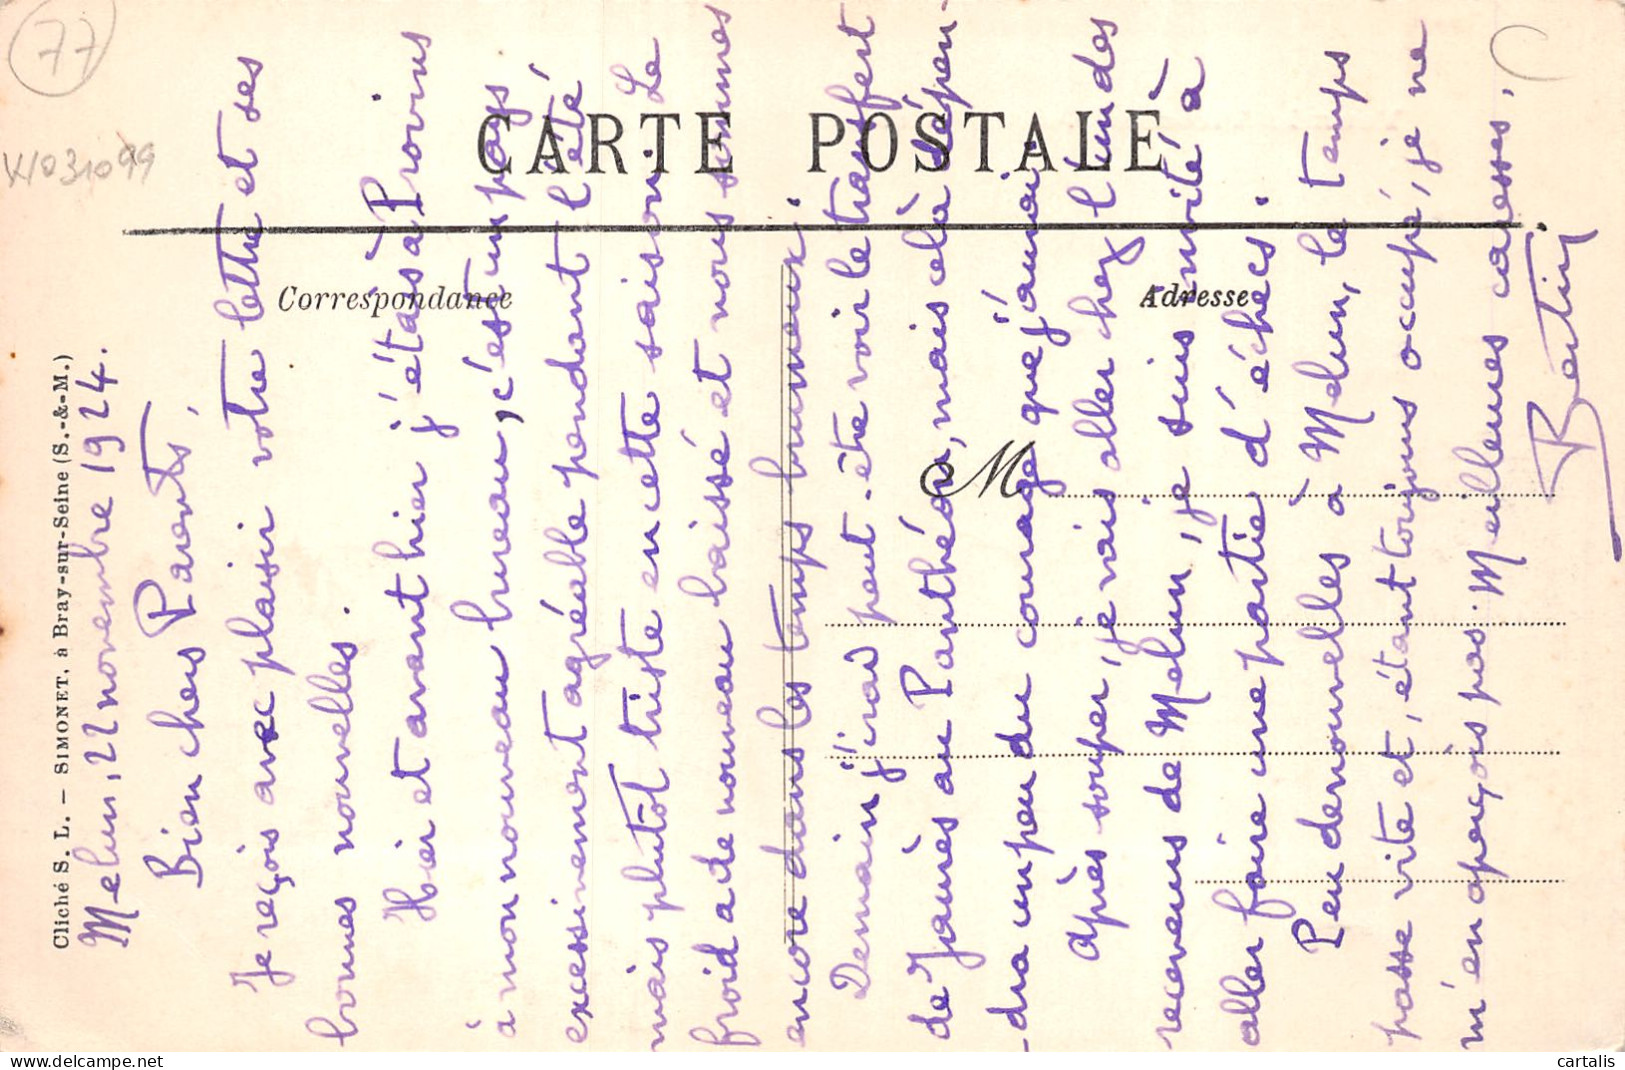 77
CARTE POSTALE
Correspondance
Adresse
M
Cliché S. L. – SIMONET, à Bray-sur-Seine (S.-&-M.)
Melun, 22 novembre 1924.
Bien chers Parents,
Je reçois avec plaisir votre lettre et ses
bonnes nouvelles.
Hier et avant hier j'étais à Provins
à mon nouveau bureau, c'est un pays
excessivement agréable pendant l'été
mais plutôt triste en cette saison. Le
froid a de nouveau baissé et nous sommes
encore dans les temps brumeux.
Demain j'irai peut-être voir le transfert
de Jaurès au Panthéon, mais celà dépen-
-dra un peu du courage que j'aurai.
Après souper, je vais aller chez l'un des
receveurs de Melun, je suis invité à
aller faire une partie d'échecs.
Peu de nouvelles à Melun, le temps
passe vite et, étant toujours occupé, je ne
m'en aperçois pas. Meilleures caresses,
cartalis